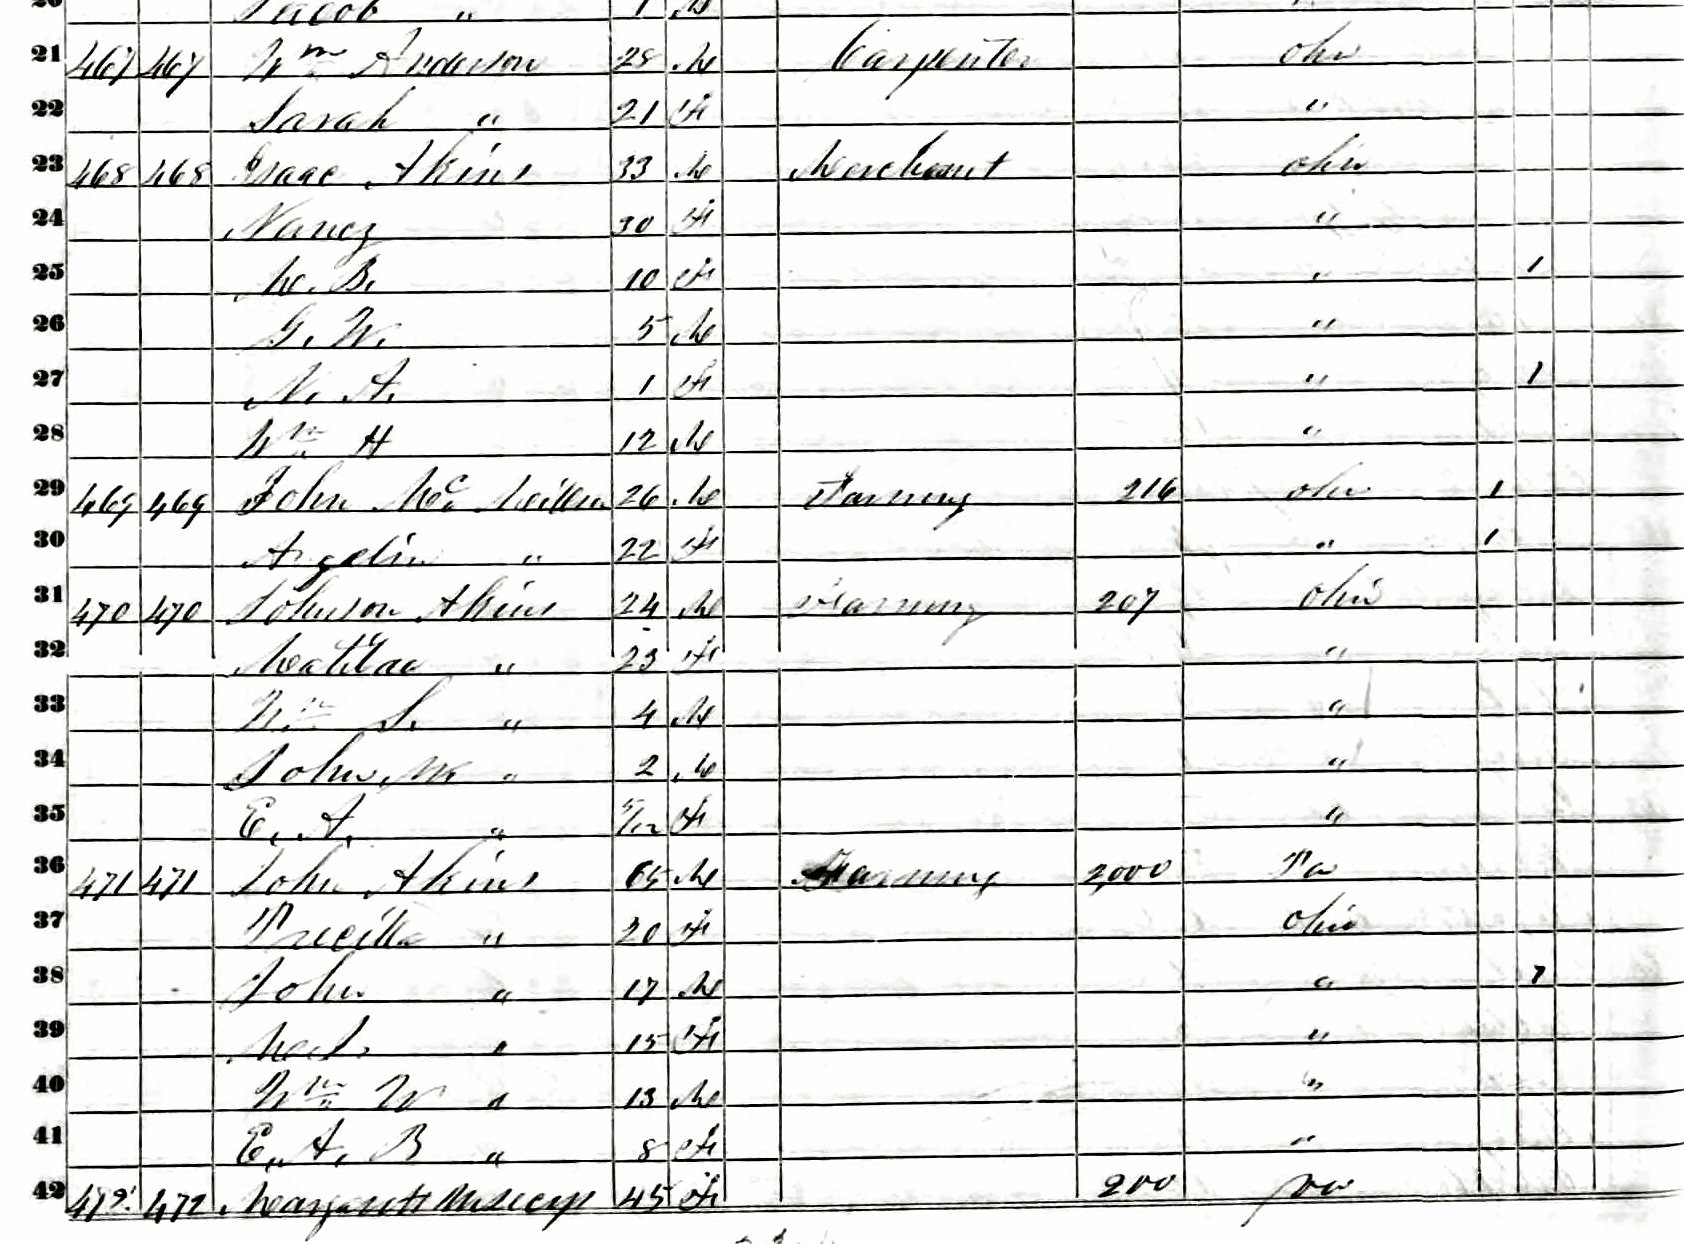 Jacob " 1 M
21 467 467 Wm Anderson 28 M Carpenter Ohio
22 Sarah " 21 F "
23 468 468 Isaac Akins 33 M Merchant Ohio
24 Nancy 30 F "
25 M. B. 10 F " 1
26 G. W. 5 M "
27 N. A. 1 F " 1
28 Wm H 12 M "
29 469 469 John Mc 26 M Farming 216 Ohio 1
30 Angelin " 22 F " 1
31 470 470 Johnson Akins 24 M Farming 207 Ohio
32 Matilda " 23 F "
33 Wm S. " 4 M "
34 John M " 2 M "
35 E. A. " 5/12 F "
36 471 471 John Akins 65 M Farming 2,000 Pa
37 " 20 F Ohio
38 John " 17 M " 1
39 " 15 F "
40 Wm W " 13 M "
41 E. A. B " 8 F "
42 472 472 Margarett 45 F 200 Pa